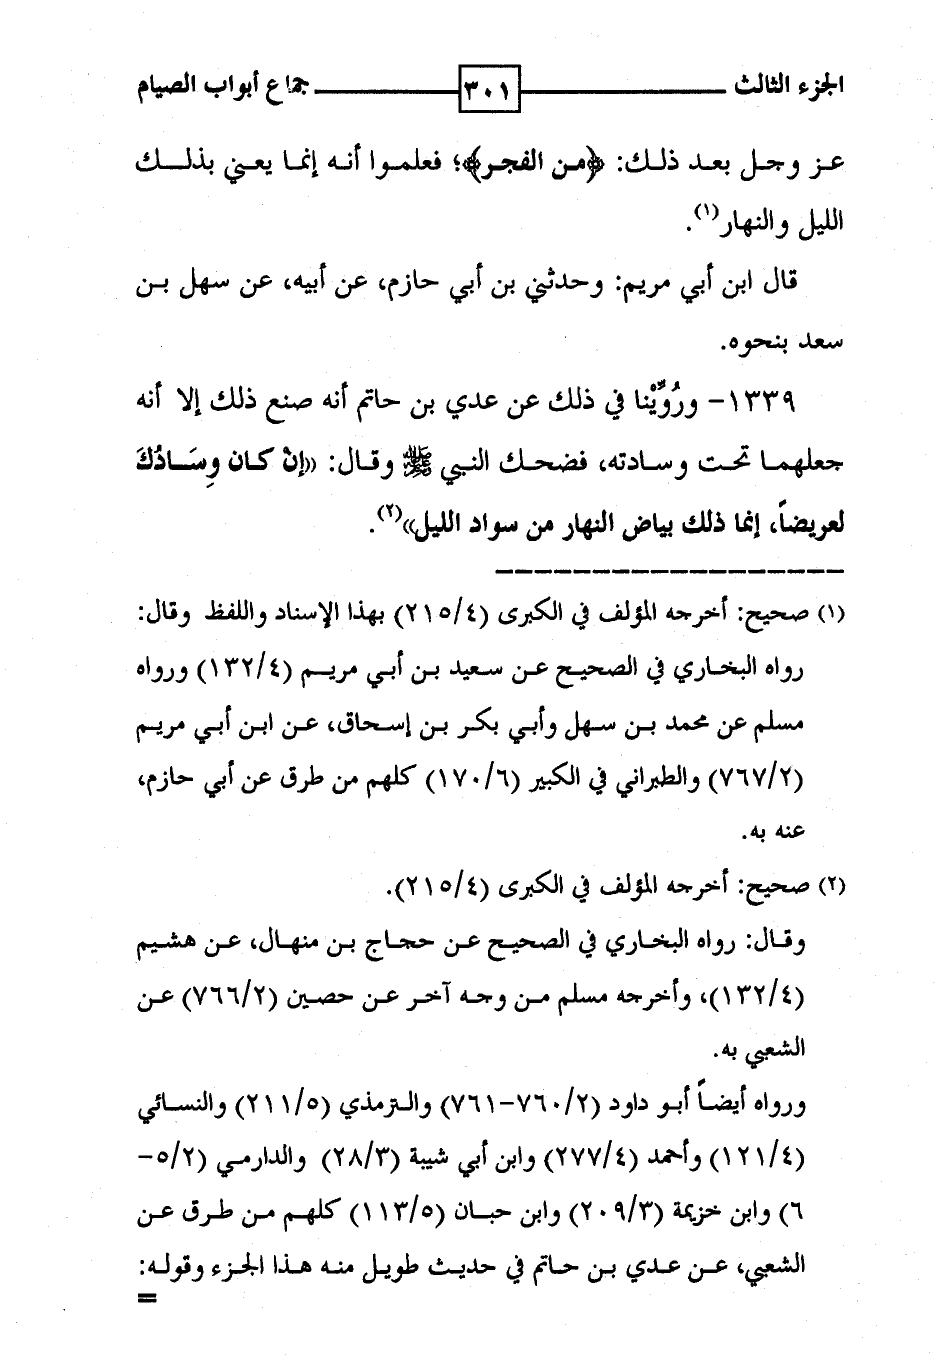 الجزء الثالث ٣٠١ جماع أبواب الصيام
عز وجل بعد ذلك: ﴿من الفجر﴾؛ فعلموا أنه إنما يعني بذلك
الليل والنهار(١).
قال ابن أبي مريم: وحدثني بن أبي حازم، عن أبيه، عن سهل بن
سعد بنحوه.
١٣٣٩- ورُوِّيْنا في ذلك عن عدي بن حاتم أنه صنع ذلك إلا أنه
جعلهما تحت وسادته، فضحك النبي ﷺ وقال: «إنْ كان وِسَادُكَ
لعريضاً، إنما ذلك بياض النهار من سواد الليل»(٢).
(١) صحيح: أخرجه المؤلف في الكبرى (٢١٥/٤) بهذا الإسناد واللفظ وقال:
رواه البخاري في الصحيح عن سعيد بن أبي مريم (١٣٢/٤) ورواه
مسلم عن محمد بن سهل وأبي بكر بن إسحاق، عن ابن أبي مريم
(٧٦٧/٢) والطبراني في الكبير (١٧٠/٦) كلهم من طرق عن أبي حازم،
عنه به.
(٢) صحيح: أخرجه المؤلف في الكبرى (٢١٥/٤).
وقال: رواه البخاري في الصحيح عن حجاج بن منهال، عن هشيم
(١٣٢/٤)، وأخرجه مسلم من وجه آخر عن حصين (٧٦٦/٢) عن
الشعبي به.
ورواه أيضاً أبو داود (٧٦٠/٢-٧٦١) والترمذي (٢١١/٥) والنسائي
(١٢١/٤) وأحمد (٢٧٧/٤) وابن أبي شيبة (٢٨/٣) والدارمي (٥/٢-
٦) وابن خزيمة (٢٠٩/٣) وابن حبان (١١٣/٥) كلهم من طرق عن
الشعبي، عن عدي بن حاتم في حديث طويل منه هذا الجزء وقوله:
=